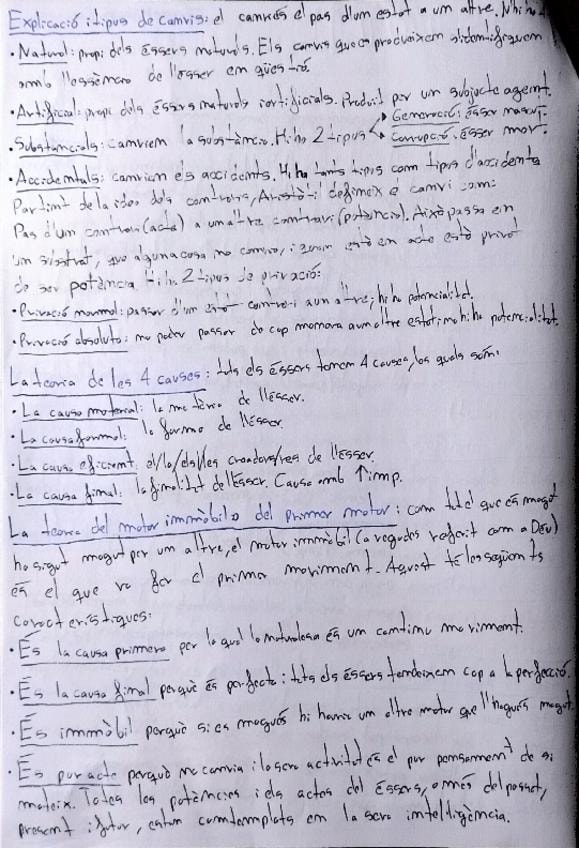 Explicació i tipus de canvis: el canvi és el pas d'un estat a un altre. N'hi ha
• Natural: propi dels éssers naturals. Els canvis que es produeixen s'identifiquen
amb l'essència de l'ésser en qüestió.
• Artificial: propi dels éssers naturals i artificials. Produït per un subjecte agent.
• Substancials: canvien la substància. Hi ha 2 tipus Generació: ésser naixi.
Corrupció: ésser mor.
• Accidentals: canvien els accidents. Hi ha tants tipus com tipus d'accidents
Partint de la idea dels contraris, Aristòtil defineix el canvi com:
Pas d'un contrari (acte) a un altre contrari (potència). Això passa en
un substrat, que alguna cosa no canvia, i quan està en acte està privat
de ser potència. Hi ha 2 tipus de privació:
• Privació normal: passar d'un estat contrari a un altre; hi ha potencialitat.
• Privació absoluta: no poder passar de cap manera a un altre estat; no hi ha potencialitat.
La teoria de les 4 causes: tots els éssers tenen 4 causes, les quals són:
• La causa material: la matèria de l'ésser.
• La causa formal: la forma de l'ésser.
• La causa eficient: el/la/els/les creadors/res de l'ésser.
• La causa final: la finalitat de l'ésser. Causa amb ↑imp.
La teoria del motor immòbil o del primer motor: com tot el que és mogut
ha sigut mogut per un altre, el motor immòbil (a vegades referit com a Déu)
és el que va fer el primer moviment. Aquest té les següents
característiques:
• És la causa primera per la qual la naturalesa és un continu moviment.
• És la causa final perquè és perfecte: tots els éssers tendeixen cap a la perfecció.
• És immòbil perquè si es mogués hi hauria un altre motor que l'hagués mogut.
• És pur acte perquè no canvia i la seva activitat és el pur pensament de si
mateix. Totes les potències i els actes del éssers, a més del passat,
present i futur, estan contemplats en la seva intel·ligència.